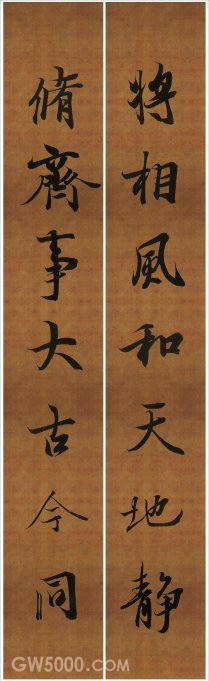 将相風和天地静
脩齊事大古今同
GW5000.COM